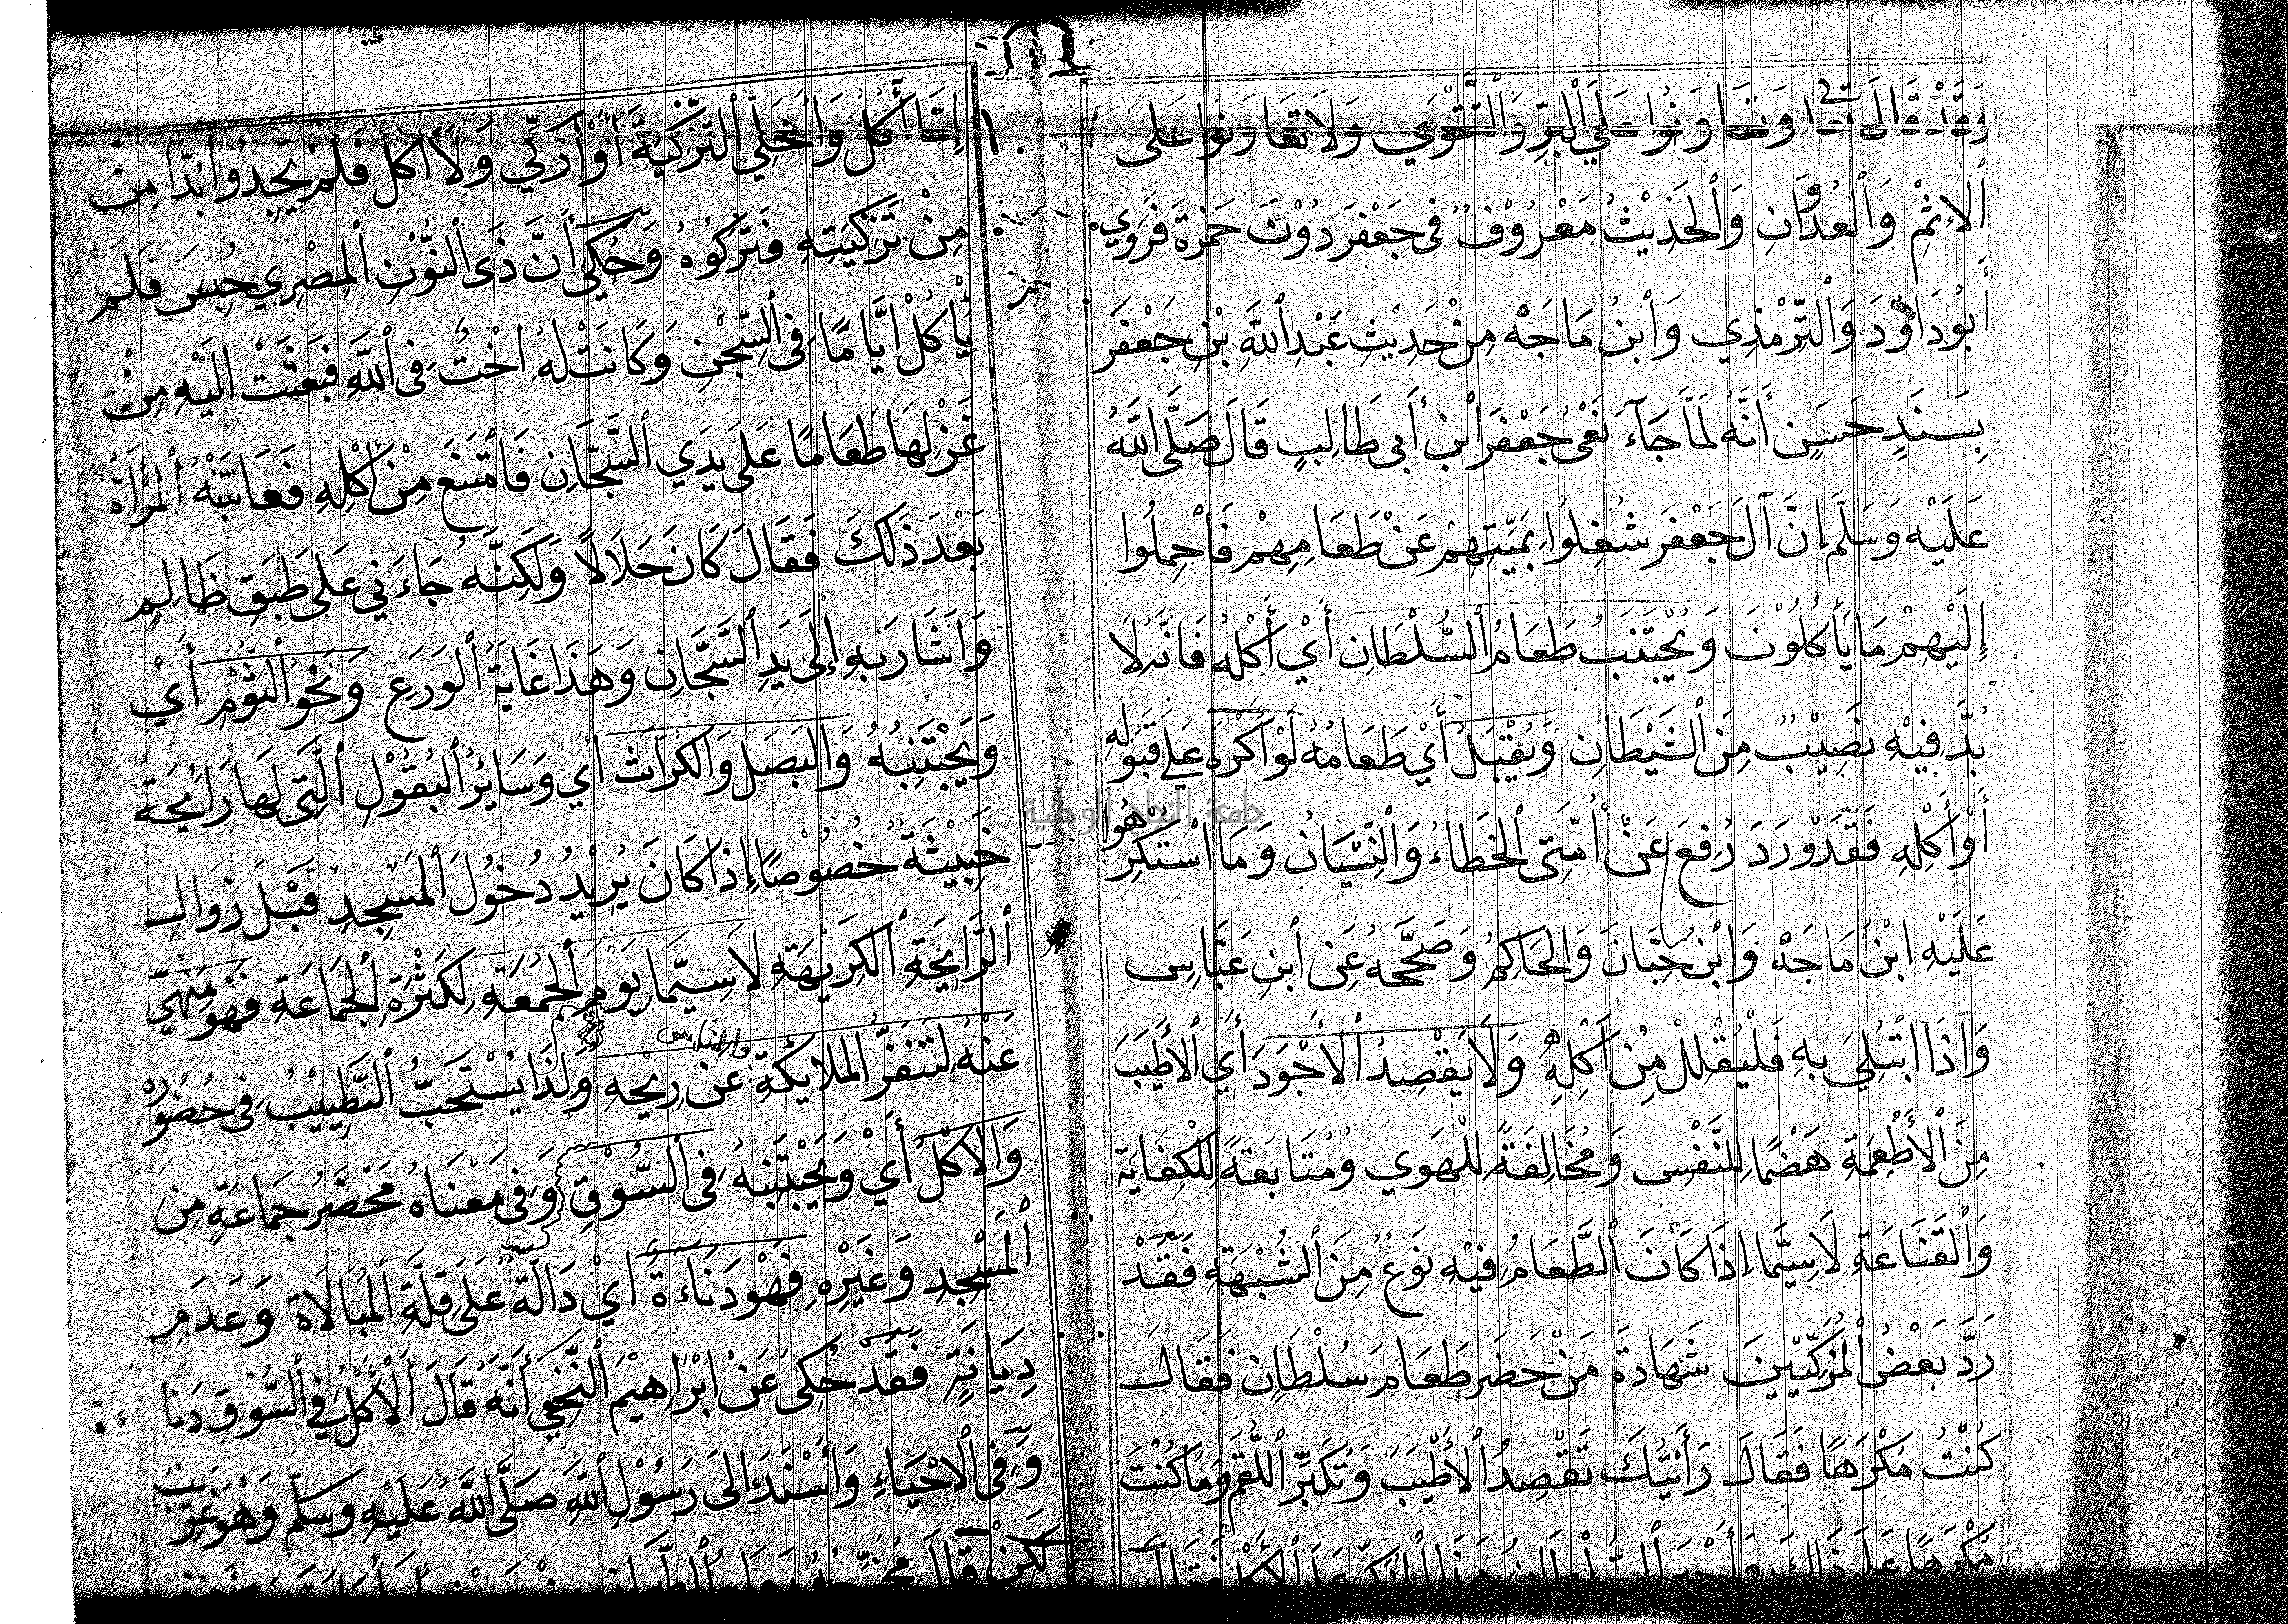 وَقَدْ قَالَ تعا وَتَعَاوَنُوا عَلَي الْبِرِّ وَالتَّقْوَي وَلَا تَعَاوَنُوا عَلَى
الْاِثْمِ وَالْعُدْوَانِ وَالْحَدِيْثُ مَعْرُوْفٌ فى جَعْفَرَ دُوْنَ حَمْزَةَ فَرَوَي
أَبُو دَاوُدَ وَالتِّرْمِذِي وَابْنُ مَاجَهْ مِنْ حَدِيْثِ عَبْدِ اللَّهِ بْنِ جَعْفَرَ
بِسَنَدٍ حَسَنٍ أَنَّهُ لَمَّا جَاءَ نَعْىُ جَعْفَرَ ابْنِ أَبى طَالِبٍ قَالَ صَلَّى اللَّهُ
عَلَيْهِ وَسَلَّم إنَّ آلَ جَعْفَرَ شُغِلُوا بِمَيِّتِهِمْ عَنْ طَعَامِهِمْ فَاحْمِلُوا
إِلَيْهِمْ مَا يَأْكُلُوْنَ وَيُجْتَنَبُ طَعَامُ السُّلْطَانِ أَيْ أَكْلُهُ فَانَّهُ لَا
بُدَّ فِيْهِ نَصِيْبٌ مِنَ الشَيْطَانِ وَيُقْبَلُ أَيْ طَعَامُهُ لَوْ اكْرَهَ عَلَي قَبُولِهِ
أَوْ أَكْلِهِ فَقَدْ وَرَدَ رُفِعَ عَنْ اُمَّتِى الْخَطَاءُ وَالْنِّسْيَانُ وَمَا اسْتُكْرِهُوا
عَلَيْهِ ابْنُ مَاجَهْ وَابْنُ حِبَّانَ وَالْحَاكِمُ وَصَحَّحَهُ عَنِ ابْنِ عَبَّاسٍ
وَاذَا ابْتُلِيَ بِهِ فَلْيُقْلِلْ مِنْ أَكْلِهِ وَلَا يَقْصِدُ الْأَجْوَدَ أَيِ الْأَطْيَبَ
مِنَ الْأَطْعِمَةِ هَضْمًا لِلنَّفْسِ وَمُخَالِفَةً لِلْهَوي وَمُتَابَعَةً لِلْكِفَايَةِ
وَالْقَنَاعَةِ لَاسِيَّمَا اِذَا كَانَ الطَّعَامُ فِيْهِ نَوْعٌ مِنَ الشُبْهَةِ فَقَدْ
رَدَّ بَعْضُ الْمُزَكِّيْينَ شَهَادَةَ مَنْ حَضَرَ طَعَامَ سُلْطَانٍ فَقَالَ
كُنْتُ مُكْرَهًا فَقَالَ رَأَيْتُكَ تَقْصِدُ الْأَطْيَبَ وَتُكَبِّرُ اللُّقَمَ وَمَا كُنْتَ
مُكْرَهًا عَلَى ذَلِكَ
إِمَّا أٰكُلُ وَأُخَلِّي التَزْكِيَةَ أَوْ اُزَكِّي وَلَا اٰكُلُ فَلَمْ يَجِدُوا بُدًّا مِنْ
مِنْ تَزْكِيَتِهِ فَتَرَكُوْهُ وَحُكِيَ أَنَّ ذَى النُّوْنِ الْمِصْرِي حُبِسَ فَلَم
يَأْكُلْ ايَّامًا فِى السِّجْنِ وَكَانَتْ لَهُ اخْتٌ فِى اللَّهِ فَبَعَثَتْ الَيْهِ مِنْ
غَزْلِهَا طَعَامًا عَلَى يَدَي السَّجَّانِ فَامْتَنَعَ مِنْ أَكْلِهِ فَعَاتَبَتْهُ الْمَرْأَةُ
بَعْدَ ذَلِكَ فَقَالَ كَانَ حَلَالًا وَلَكِنَّهُ جَاءَنِي عَلَى طَبَقِ ظَالِمٍ
وَاَشَارَ بِهِ إِلَى يَدِ السَّجَّانِ وَهَذَا غَايَةُ الْوَرَعِ وَنَحْوُ الثُوْمِ أَيْ
وَيَجْتَنِبُهُ وَالْبَصَلِ وَالْكُرَّاث أَيْ وَسَائِرُ الْبُقُوْلِ الَّتِى لَهَا رَائِحَة
خَبِيْثَةٌ خُصُوْصًا إِذا كَانَ يُرِيْدُ دُخُوْلَ الْمَسْجِدِ قَبْلَ زَوَالِ
الرَّايِحَةِ الْكَرِيْهَةِ لَاسِيَّمَا يَوْمَ الْجُمُعَةِ لِكَثْرَةِ الْجَمَاعَةِ فَهُوَ مَنْهِيّ
عَنْهُ لِتَنَفُّرِ الْمَلَايِكَةِ والناس عَنْ رِيْحِهِ وَلِذَا يُسْتَحَبُّ التَّطْيِيْبُ فِى حُضُوْرِهِ
وَالْاَكْلُ أَيْ وَيَجْتَنِبُهُ فِى السُّوْقِ وَفِى مَعْنَاهُ مَحْضَرُ جَمَاعَةٍ مِنَ
الْمَسْجِدِ وَغَيْرِهِ فَهُوَ دَنَاءَةٌ اَيْ دَالَّةٌ عَلَى قِلَّةِ الْمُبَالَاةِ وَعَدَمِ
دِيَانَةٍ فَقَدْ حُكِىَ عَنْ ابْرَاهِيْمَ النَّخَعِي أَنَّهُ قَالَ الْأَكْلُ فِي السُّوْقِ دَنَاءَةٌ
وَفِى الْاحْيَاءِ وَأُسْنَدَ الَى رَسُوْلِ اللَّهِ صَلَّى اللَّهُ عَلَيْهِ وَسَلَّم وَهُوَ غَرِيْبٌ
لَكِنْ قَالَ